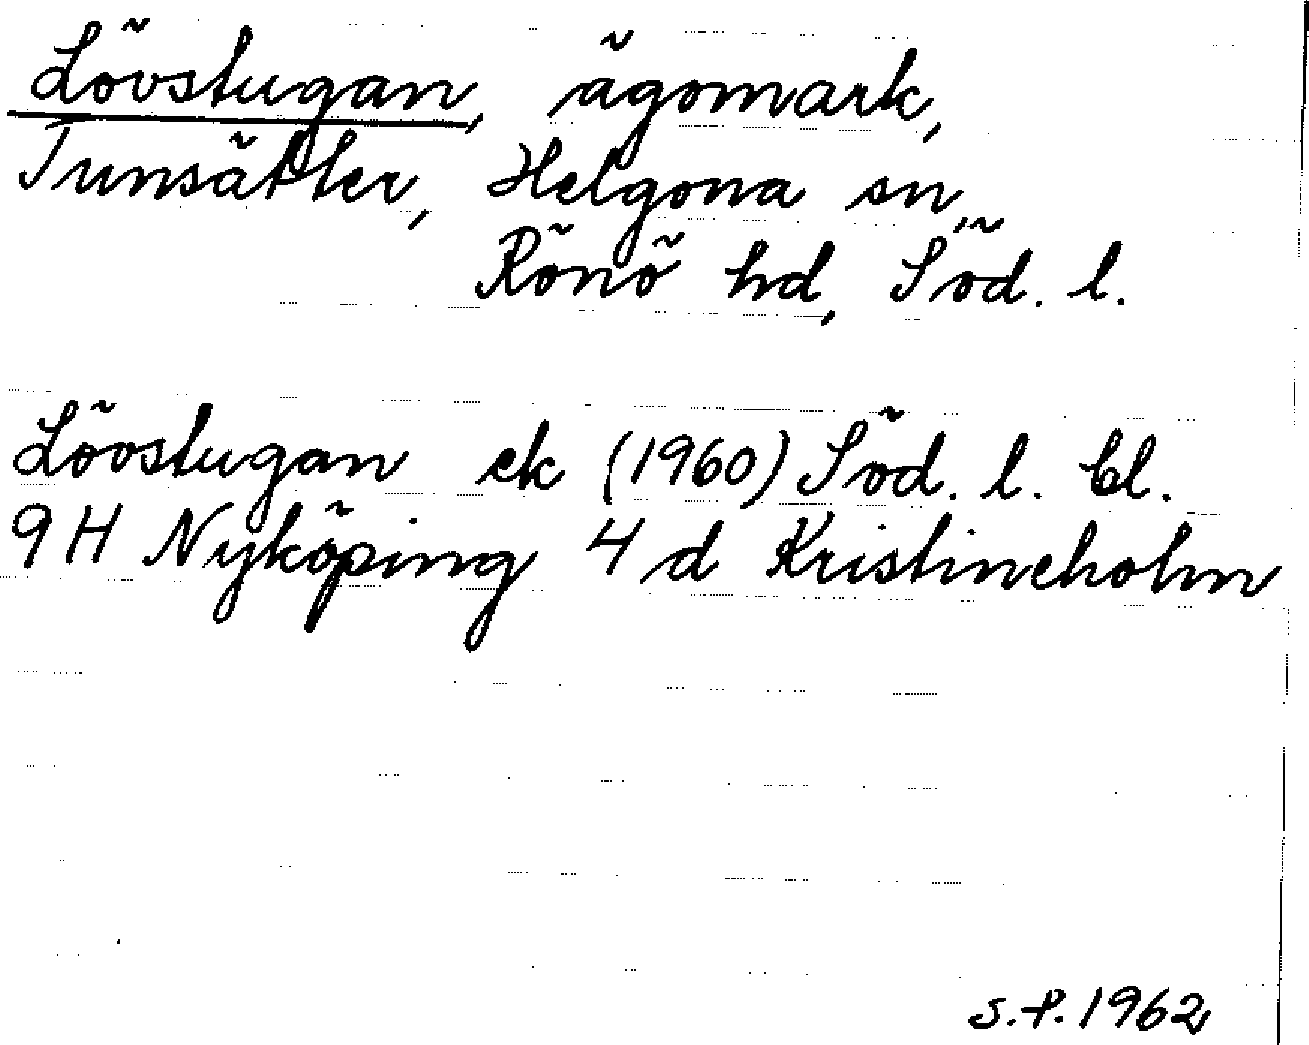 Lövstugan, ägomark,
Tunsätter, Helgona sn,
Rönö hd, Söd. l.
Lövstugan ek (1960) Söd. l. bl.
9H Nyköping 4 d Kristineholm
S.P. 1962